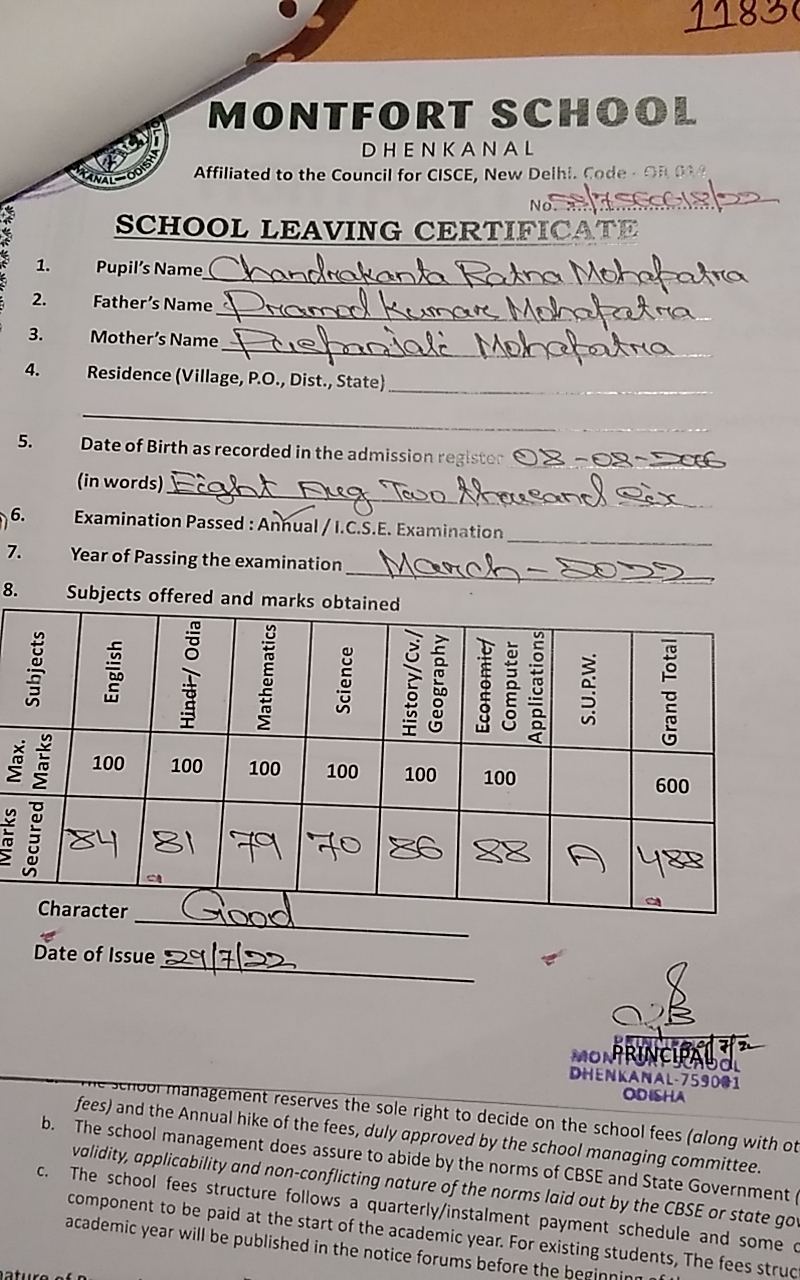 11830
MONTFORT SCHOOL
DHENKANAL
NKANAL-ODISHA
Affiliated to the Council for CISCE, New Delhi. Code - OR 014
No.
SCHOOL LEAVING CERTIFICATE
1. Pupil's Name Chandrakanta Ratna Mohapatra
2. Father's Name Pramod Kumar Mohapatra
3. Mother's Name Puspanjali Mohapatra
4. Residence (Village, P.O., Dist., State)
5. Date of Birth as recorded in the admission register 08-08-2006
(in words) Eight Aug Two thousand Six
6. Examination Passed : Annual / I.C.S.E. Examination
7. Year of Passing the examination March - 2022
8. Subjects offered and marks obtained
Subjects English Hindi / Odia Mathematics Science History/Cv./ Geography Economic/ Computer Applications S.U.P.W. Grand Total
Max. Marks 100 100 100 100 100 100 600
Marks Secured 84 81 79 70 86 88 A 488
Character Good
Date of Issue 29/7/22
PRINCIPAL
MONTFORT SCHOOL
DHENKANAL-759001
ODISHA
The school management reserves the sole right to decide on the school fees (along with ot
fees) and the Annual hike of the fees, duly approved by the school managing committee.
b. The school management does assure to abide by the norms of CBSE and State Government (
validity, applicability and non-conflicting nature of the norms laid out by the CBSE or state gov
c. The school fees structure follows a quarterly/instalment payment schedule and some c
component to be paid at the start of the academic year. For existing students, The fees struct
academic year will be published in the notice forums before the beginning of